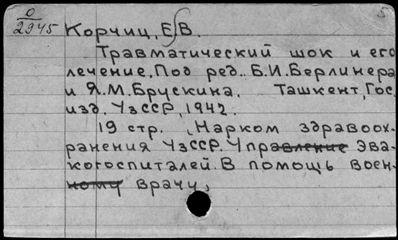 О
2945
5
Корчиц, Е.В.
Травматический шок и его
лечение. Под ред. Б.И.Берлинера
и Я.М.Брускина. Ташкент, Гос.
изд. УзССР, 1942.
19 стр. (Нарком здравоох-
ранения УзССР. Управление Эва-
когоспиталей. В помощь воен-
ному врачу)